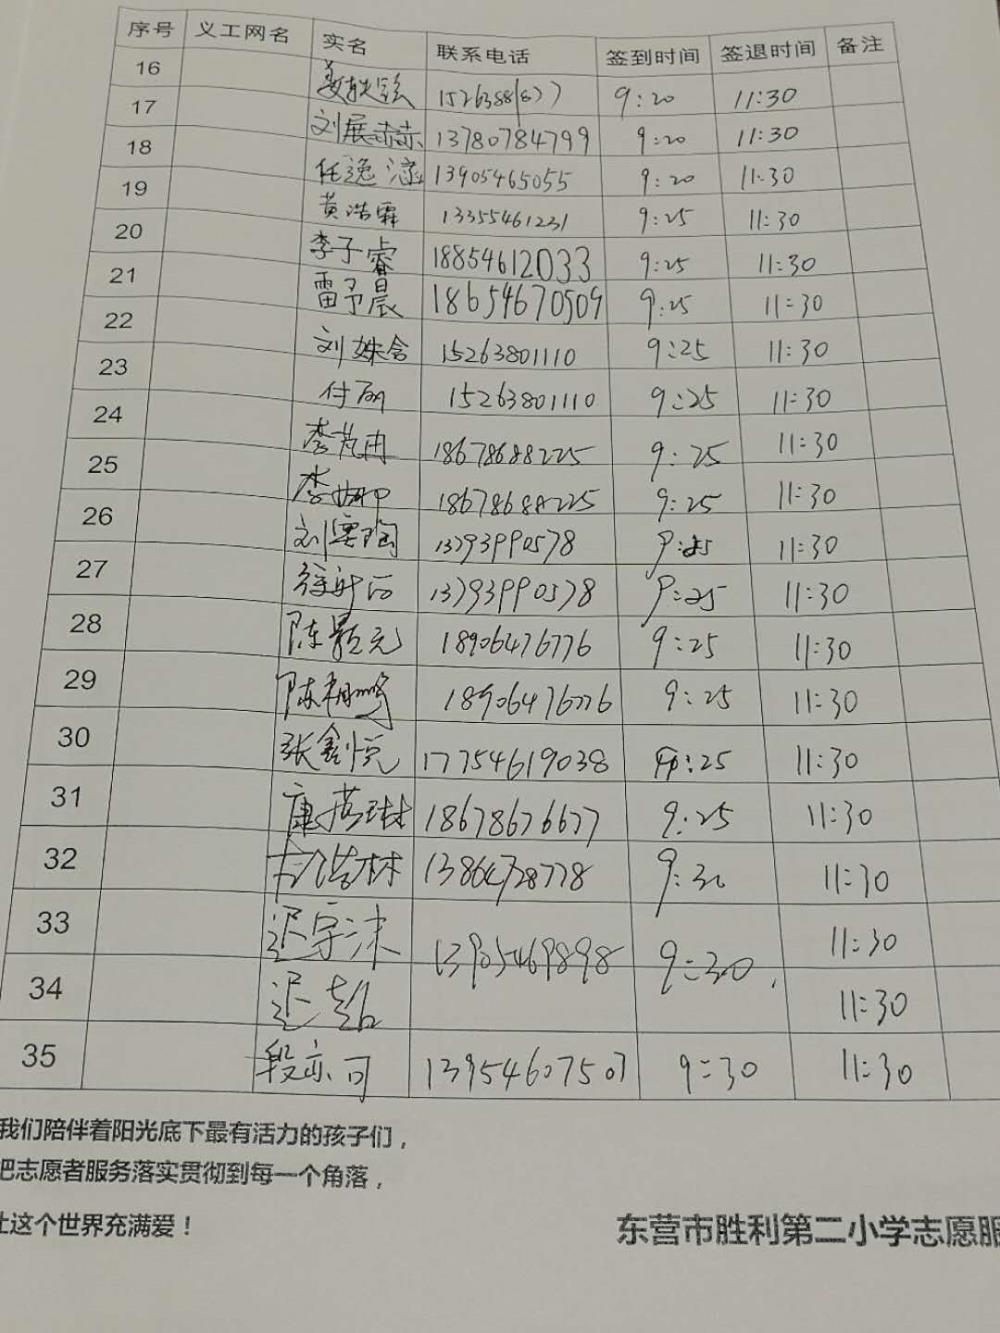 序号 义工网名 实名 联系电话 签到时间 签退时间 备注
16 9:20 11:30
17 刘展赫 13780784799 9:20 11:30
18 任逸涵 13905465055 9:20 11:30
19 黄浩霖 13355461231 9:25 11:30
20 李子睿 18854612033 9:25 11:30
21 雷予晨 18654670509 9:25 11:30
22 刘姝含 15263801110 9:25 11:30
23 付丽 15263801110 9:25 11:30
24 李芃冉 18678688225 9:25 11:30
25 李 18678688225 9:25 11:30
26 刘 13793990578 9:25 11:30
27 13793990578 9:25 11:30
28 陈 元 18906476776 9:25 11:30
29 陈翔鹏 18906476776 9:25 11:30
30 张鑫悦 17754619038 9:25 11:30
31 康 琳 18678676677 9:25 11:30
32 浩林 13864728778 9:30 11:30
33 迟宇沫 13905469898 9:30 11:30
34 迟 11:30
35 段亦可 13954607507 9:30 11:30
我们陪伴着阳光底下最有活力的孩子们，
把志愿者服务落实贯彻到每一个角落，
让这个世界充满爱！
东营市胜利第二小学志愿服